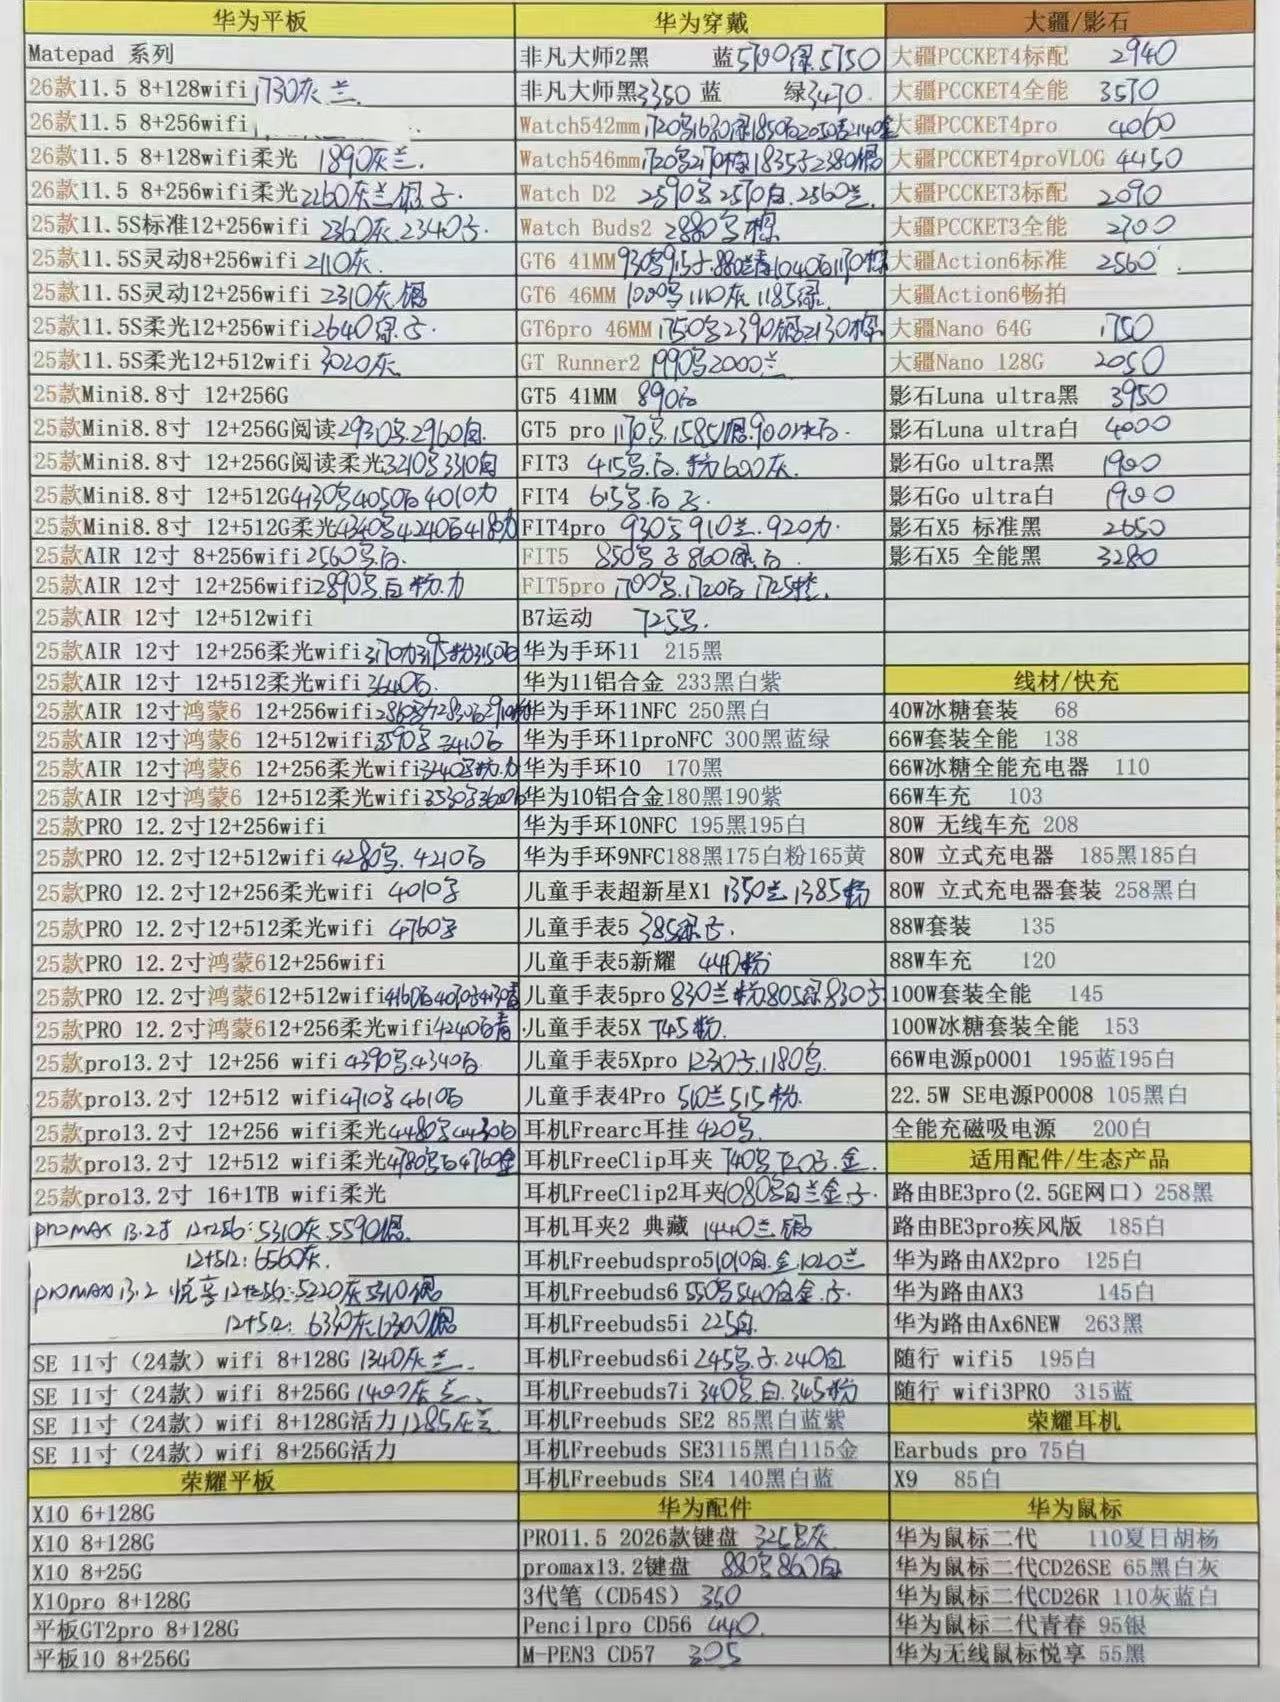 华为平板
Matepad 系列
26款11.5 8+128wifi 1730灰兰.
26款11.5 8+256wifi
26款11.5 8+128wifi柔光 1890灰兰.
26款11.5 8+256wifi柔光 2260灰兰
25款11.5S标准12+256wifi 2360灰.2340
25款11.5S灵动8+256wifi 2110灰.
25款11.5S灵动12+256wifi 2310灰.
25款11.5S柔光12+256wifi 2640绿.
25款11.5S柔光12+512wifi 3020灰
25款Mini8.8寸 12+256G
25款Mini8.8寸 12+256G阅读2930 2960白.
25款Mini8.8寸 12+256G阅读柔光3210 3310白
25款Mini8.8寸 12+512G4130 4050白4010
25款Mini8.8寸 12+512G柔光4340 4240白418
25款AIR 12寸 8+256wifi 2560 白.
25款AIR 12寸 12+256wifi2890 白粉
25款AIR 12寸 12+512wifi
25款AIR 12寸 12+256柔光wifi3170 3175粉3150白
25款AIR 12寸 12+512柔光wifi3640白.
25款AIR 12寸鸿蒙6 12+256wifi
25款AIR 12寸鸿蒙6 12+512wifi 3410白
25款AIR 12寸鸿蒙6 12+256柔光wifi3240 粉
25款AIR 12寸鸿蒙6 12+512柔光wifi3530
25款PRO 12.2寸12+256wifi
25款PRO 12.2寸12+512wifi 4280 4210白
25款PRO 12.2寸12+256柔光wifi 4010
25款PRO 12.2寸12+512柔光wifi 4760
25款PRO 12.2寸鸿蒙612+256wifi
25款PRO 12.2寸鸿蒙612+512wifi4160白4070 4130青
25款PRO 12.2寸鸿蒙612+256柔光wifi4240白青
25款pro13.2寸 12+256 wifi 4390 4340白.
25款pro13.2寸 12+512 wifi4710 4610白
25款pro13.2寸 12+256 wifi柔光4480 4430白
25款pro13.2寸 12+512 wifi柔光4780 白4760金
25款pro13.2寸 16+1TB wifi柔光
proMAX 13.2寸 12+256:5310灰.5590
12+512:6560灰.
proMAX13.2 悦享12+256:5220灰5310
12+512: 6330灰6300
SE 11寸（24款）wifi 8+128G 1340灰兰.
SE 11寸（24款）wifi 8+256G 灰兰.
SE 11寸（24款）wifi 8+128G活力1285灰兰.
SE 11寸（24款）wifi 8+256G活力
荣耀平板
X10 6+128G
X10 8+128G
X10 8+25G
X10pro 8+128G
平板GT2pro 8+128G
平板10 8+256G
华为穿戴
非凡大师2黑 蓝5700绿.5750
非凡大师黑3350蓝 绿3470.
Watch542mm1720 1680绿1850白2050 2140金
Watch546mm1720 2170棕1835 2380
Watch D2 2590 2570白.2560兰.
Watch Buds2 2880 棕
GT6 41MM930 915 880 1040白1170棕
GT6 46MM 1000 1110灰1185绿.
GT6pro 46MM1750 2390 2130棕.
GT Runner2 1990 2000兰
GT5 41MM 890白
GT5 pro 1170 1585 900 白.
FIT3 415 白.粉600灰.
FIT4 615 白
FIT4pro 930 910兰.920
FIT5 850 860绿.白.
FIT5pro 1700 1720白1725橙.
B7运动 725
华为手环11 215黑
华为11铝合金 233黑白紫
华为手环11NFC 250黑白
华为手环11proNFC 300黑蓝绿
华为手环10 170黑
华为10铝合金180黑190紫
华为手环10NFC 195黑195白
华为手环9NFC188黑175白粉165黄
儿童手表超新星X1 1350兰1385粉
儿童手表5 385绿
儿童手表5新耀 440粉
儿童手表5pro 830兰粉805绿830
儿童手表5X 745粉.
儿童手表5Xpro 1230 1180
儿童手表4Pro 510兰515粉.
耳机Frearc耳挂 420
耳机FreeClip耳夹 740 720 金.
耳机FreeClip2耳夹1080 白兰金
耳机耳夹2 典藏 1440兰
耳机Freebudspro51010白.金.1020兰
耳机Freebuds6 550 540白金.
耳机Freebuds5i 225白.
耳机Freebuds6i 245 240白
耳机Freebuds7i 340 白.345粉
耳机Freebuds SE2 85黑白蓝紫
耳机Freebuds SE3115黑白115金
耳机Freebuds SE4 140黑白蓝
华为配件
PRO11.5 2026款键盘 325 灰
promax13.2键盘 880 860白
3代笔（CD54S）350
Pencilpro CD56 440.
M-PEN3 CD57 305
大疆/影石
大疆PCCKET4标配 2940
大疆PCCKET4全能 3570
大疆PCCKET4pro 4060
大疆PCCKET4proVLOG 4450
大疆PCCKET3标配 2090
大疆PCCKET3全能 2700
大疆Action6标准 2560
大疆Action6畅拍
大疆Nano 64G 1750
大疆Nano 128G 2050
影石Luna ultra黑 3950
影石Luna ultra白 4000
影石Go ultra黑 1900
影石Go ultra白 1900
影石X5 标准黑 2650
影石X5 全能黑 3280
线材/快充
40W冰糖套装 68
66W套装全能 138
66W冰糖全能充电器 110
66W车充 103
80W 无线车充 208
80W 立式充电器 185黑185白
80W 立式充电器套装 258黑白
88W套装 135
88W车充 120
100W套装全能 145
100W冰糖套装全能 153
66W电源p0001 195蓝195白
22.5W SE电源P0008 105黑白
全能充磁吸电源 200白
适用配件/生态产品
路由BE3pro(2.5GE网口）258黑
路由BE3pro疾风版 185白
华为路由AX2pro 125白
华为路由AX3 145白
华为路由Ax6NEW 263黑
随行 wifi5 195白
随行 wifi3PRO 315蓝
荣耀耳机
Earbuds pro 75白
X9 85白
华为鼠标
华为鼠标二代 110夏日胡杨
华为鼠标二代CD26SE 65黑白灰
华为鼠标二代CD26R 110灰蓝白
华为鼠标二代青春 95银
华为无线鼠标悦享 55黑